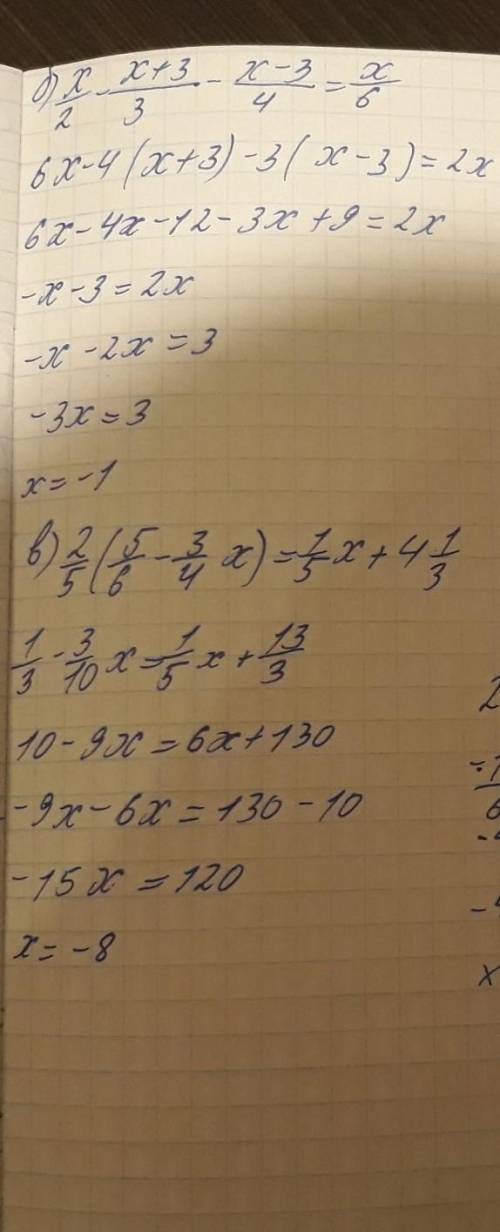 б) x/2 - (x+3)/3 - (x-3)/4 = x/6
6x-4(x+3)-3(x-3)=2x
6x-4x-12-3x+9=2x
-x-3=2x
-x-2x=3
-3x=3
x=-1
в) 2/5(5/6 - 3/4 x) = 1/5 x + 4 1/3
1/3 - 3/10 x = 1/5 x + 13/3
10-9x=6x+130
-9x-6x=130-10
-15x=120
x=-8